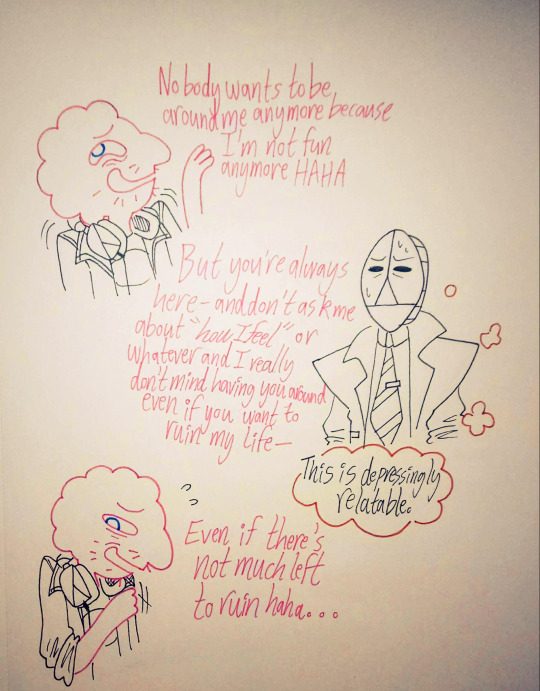 Nobody wants to be
around me anymore because
I'm not fun
anymore HAHA
But you're always
here - and don't ask me
about "how I feel" or
whatever and I really
don't mind having you around
even if you want to
ruin my life -
This is depressingly
relatable.
Even if there's
not much left
to ruin haha...